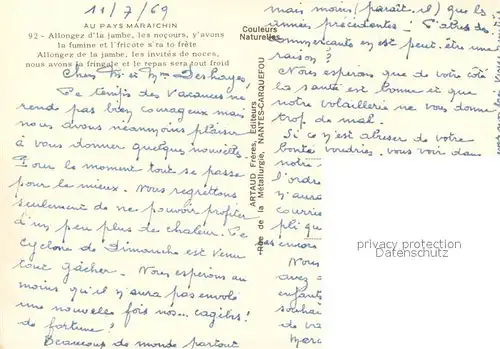 11/7/69
AU PAYS MARAICHIN
92 - Allongez d'la jambe, les noçours, y'avons
la fumine et l'fricote s'ra to frète
Allongez de la jambe, les invités de noces,
nous avons la fringale et le repas sera tout froid
Chers Mr et Mme Deshayes,
Ce temps des Vacances ne
rende pas bien courageux mais
nous avons néanmoins plaisir
à vous donner quelques nouvelles.
Pour le moment tout se passe
pour le mieux. Nous regrettons
seulement de ne pouvoir profiter
d'un peu plus de chaleur. Le
cyclone de Dimanche est venu
tout gâcher. Nous espérons au
moins qu'il n'aura pas envolé
une nouvelle fois nos... cagibis!
de fortune!
Beaucoup de monde partout
Couleurs
Naturelles
ARTAUD Frères, Editeurs
Rue de la Métallurgie, NANTES-CARQUEFOU
mais moins (paraît-il) que les
années précédentes! L'abus des
commerçants en est peut-être une
raison?
Nous espérons que de votre côté
la santé est bonne et que
notre volaillerie ne vous donne
trop de mal.
Si ce n'est abuser de votre
bonté voudriez-vous voir dans
notre
l'ordre
n'aura
courrier
pli que
pas encore
Nous
avez
enfants
souhai
de va
Merc
privacy protection